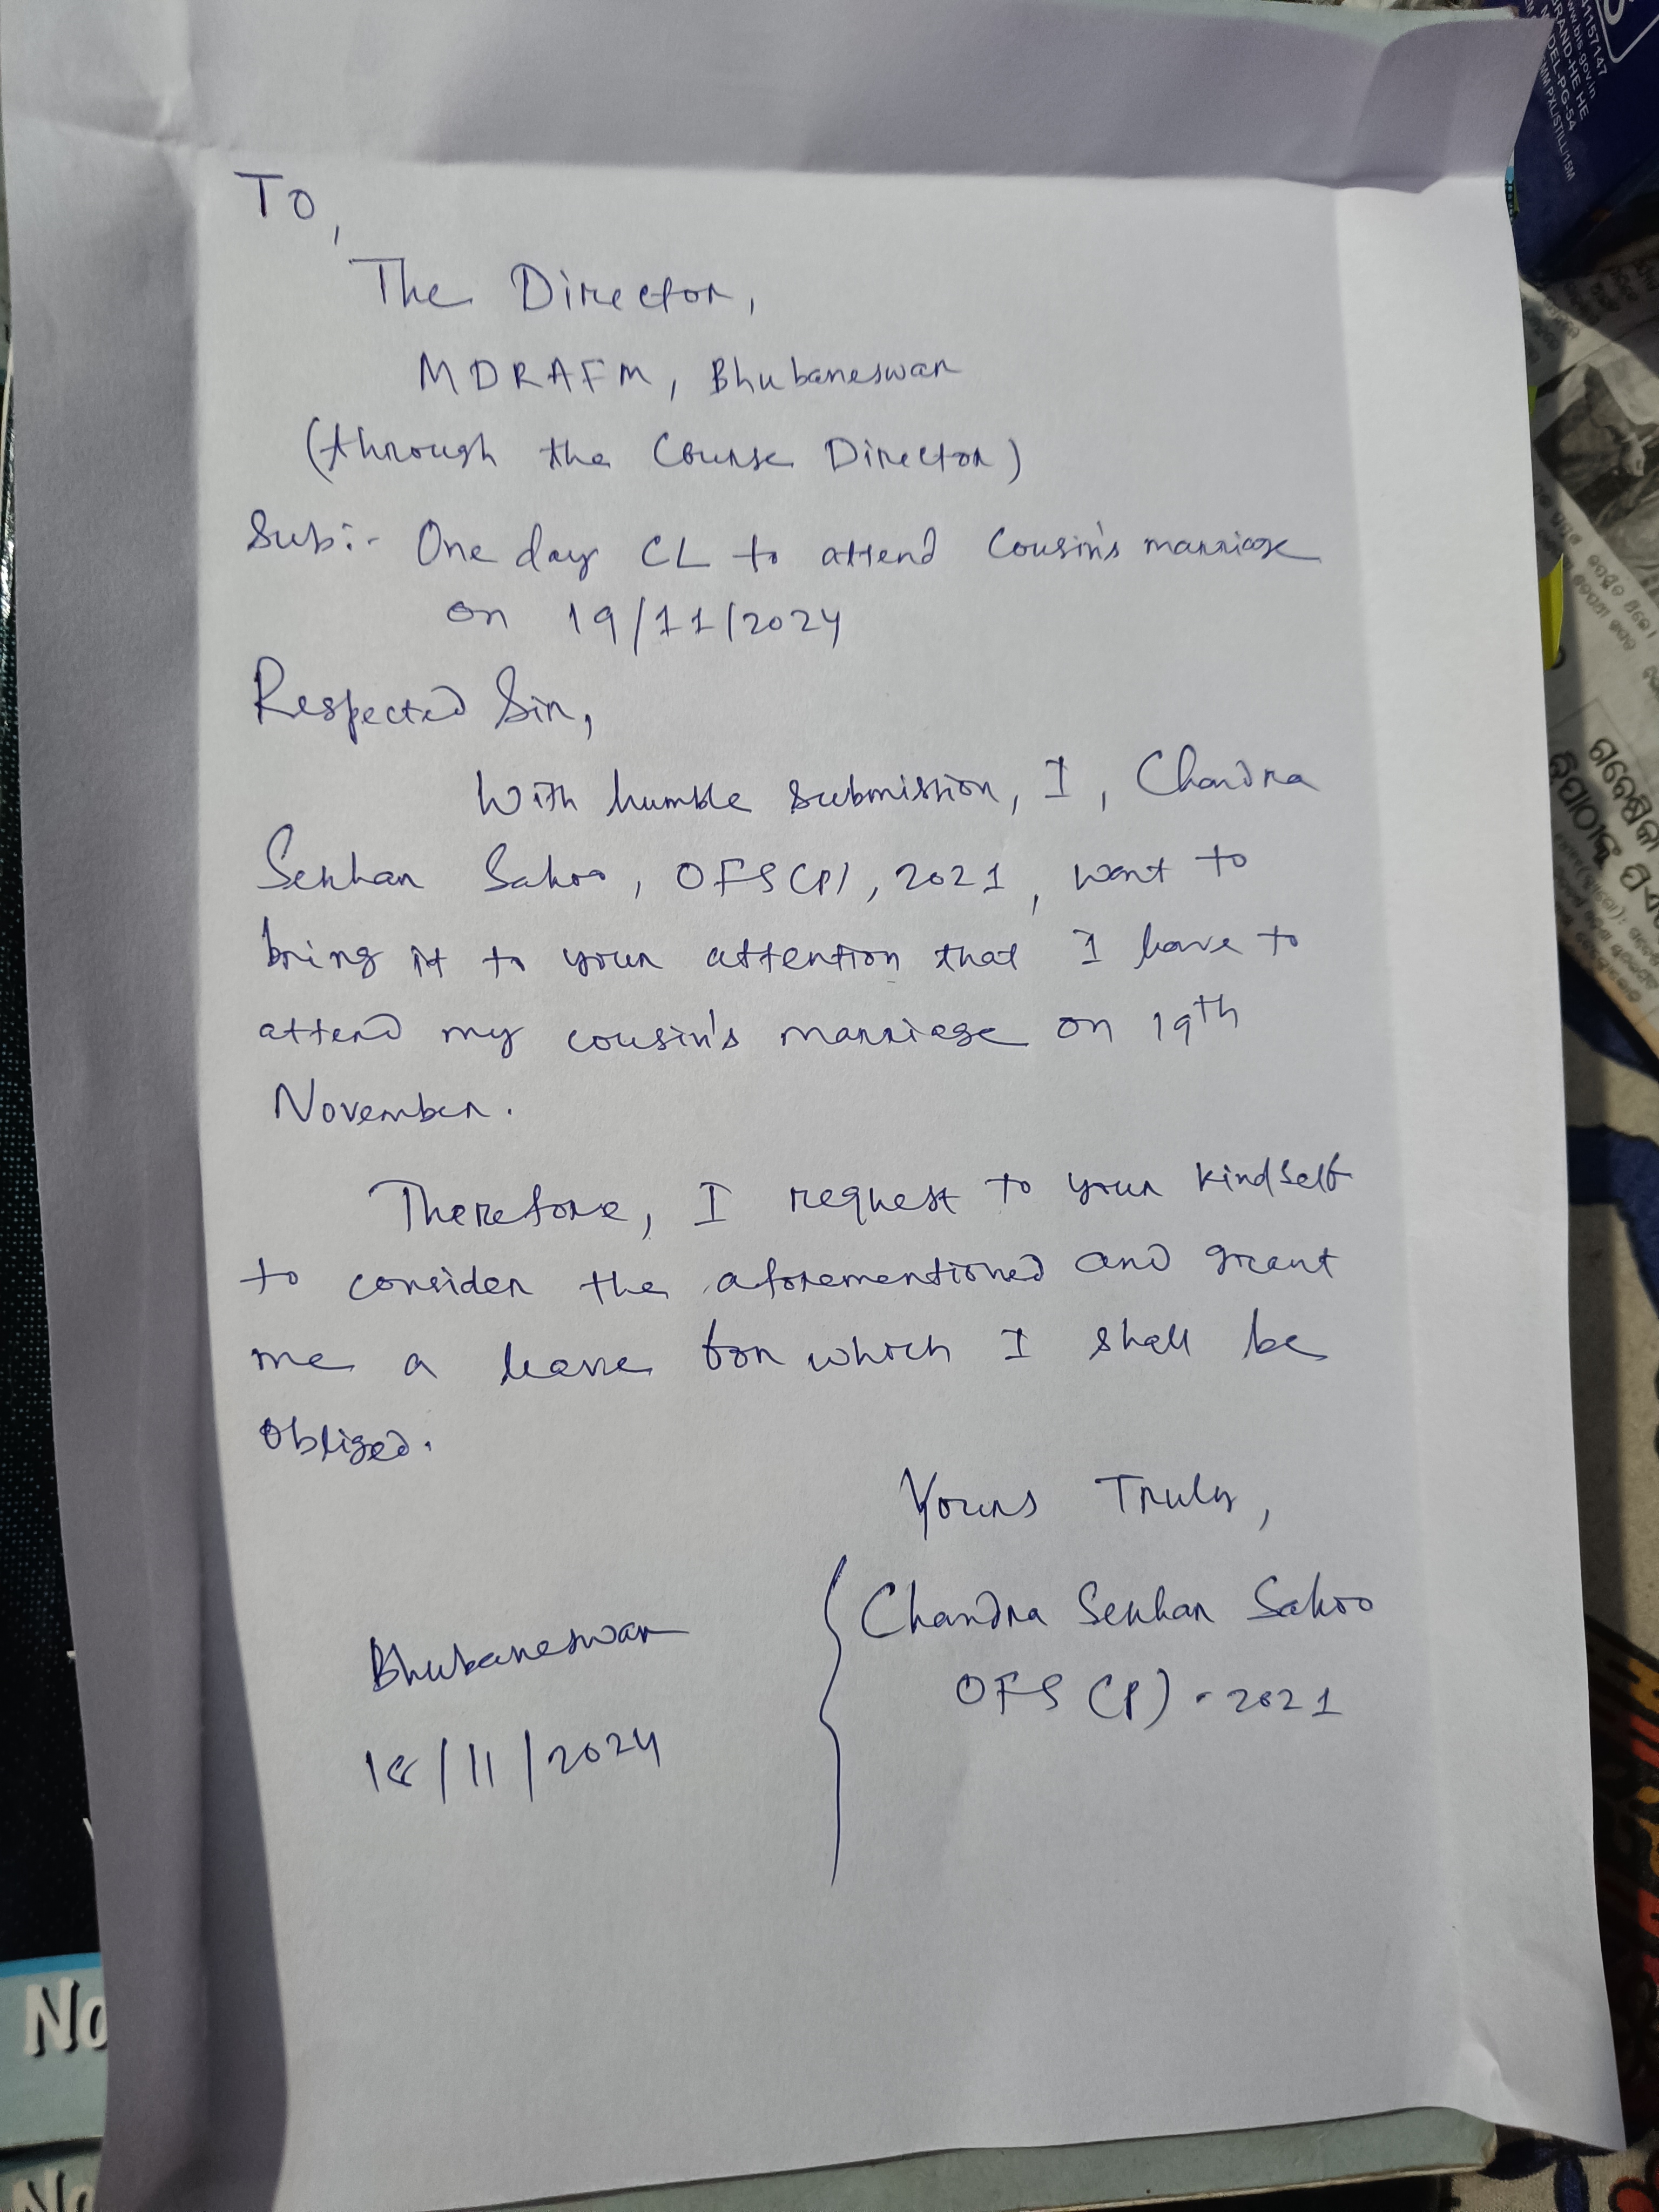 To,
The Director,
MDRAFM, Bhubaneswar
(through the Course Director)
Sub:- One day CL to attend Cousin's marriage
on 19/11/2024
Respected Sir,
With humble submission, I, Chandra
Sekhar Sahoo, OFS(P), 2021, want to
bring it to your attention that I have to
attend my cousin's marriage on 19th
November.
Therefore, I request to your kindself
to consider the aforementioned and grant
me a leave for which I shall be
obliged.
Yours Truly,
Chandra Sekhar Sahoo
OFS (P) - 2021
Bhubaneswar
18/11/2024
41157147
www.bis.gov.in
BRAND-HE HE
MODEL-PG-54
No
No